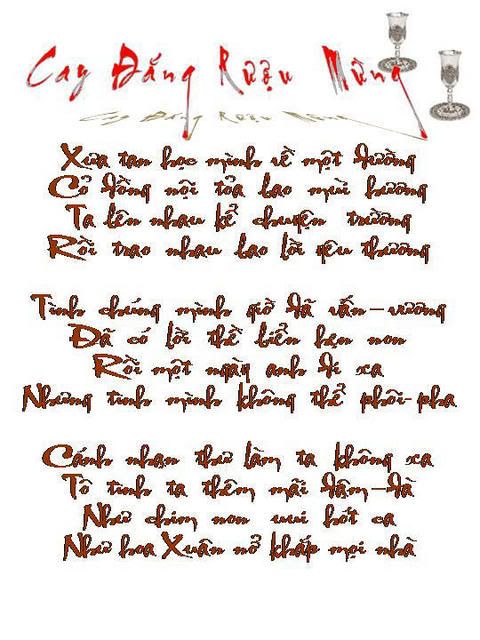 Cay Đắng Rượu Mừng
Xưa tan học mình về một đường
Cỏ đồng nội tỏa bao mùi hương
Ta bên nhau kể chuyện trường
Rồi trao nhau bao lời yêu thương
Tình chúng mình giờ đã vấn-vương
Đã có lời thề biển hẹn non
Rồi một ngày anh đi xa
Nhưng tình mình không thể phôi-pha
Cánh nhạn thư làm ta không xa
Tô tình ta thêm mãi đậm-đà
Như chim non vui hót ca
Như hoa Xuân nở khắp mọi nhà